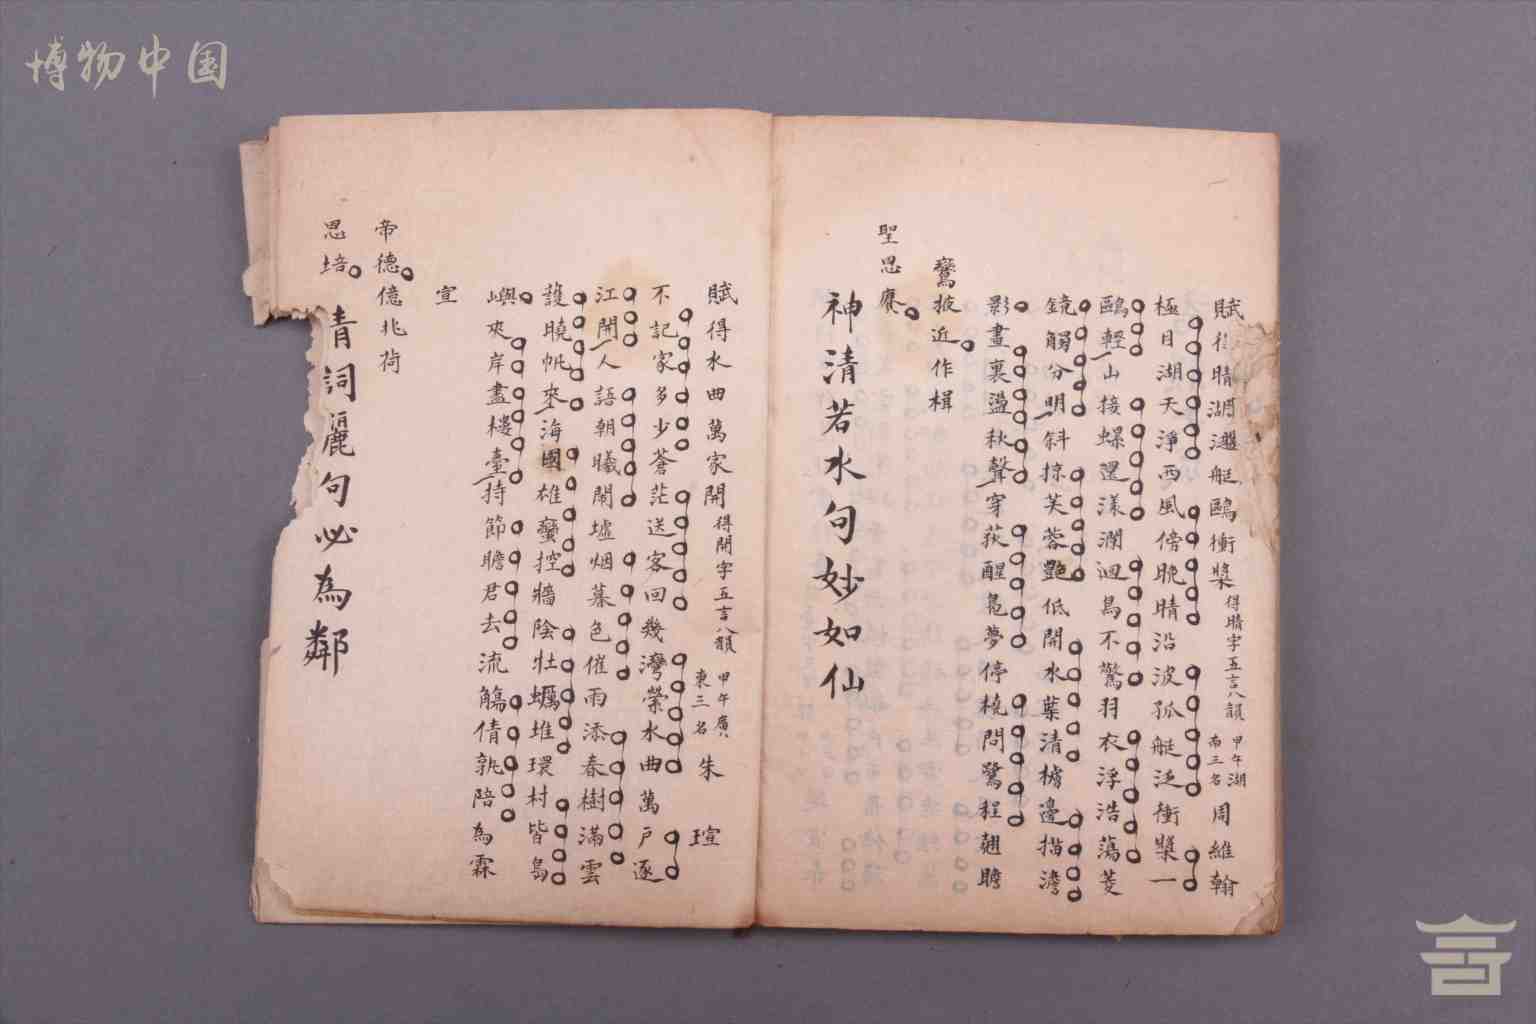 博物中国
賦得晴湖盪艇鷗衝槳 得晴字五言八韻 甲午湖南三名 周維翰
極目湖天淨西風傍晚晴沿波孤艇泛衝槳一
鷗輕山接螺還漾潤迴鳥不驚羽衣浮浩蕩菱
鏡觸分明斜掠芙蓉艷低開水葉清櫓邊描澹
影畫裏盪秋聲穿荻醒鳧夢停橈問鷺程翹瞻
鸞掖近作楫
聖恩賡
神清若水句妙如仙
賦得水曲萬家開 得開字五言八韻 甲午廣東三名 朱瑄
不記家多少蒼茫送客回幾灣縈水曲萬戶逐
江開人語朝曦鬧墟烟暮色催雨添春樹滿雲
護曉帆來海國雄蠻控牆陰牡蠣堆環村皆島
嶼夾岸盡樓臺持節瞻君去流觴倩孰陪為霖
宣
帝德億兆荷
恩培
清詞麗句必為鄰